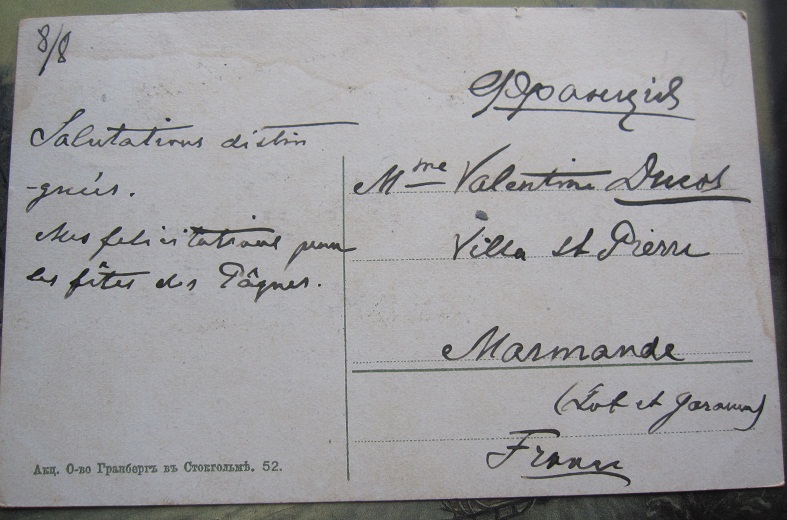 8/8
Salutations distin
-guées.
Mes felicitations pour
les fêtes des Pâques.
Франция
Mme Valentine Ducos
Villa St Pierre
Marmande
(Lot et Garonne)
France
Акц. О-во Гранбергъ въ Стокгольмѣ. 52.